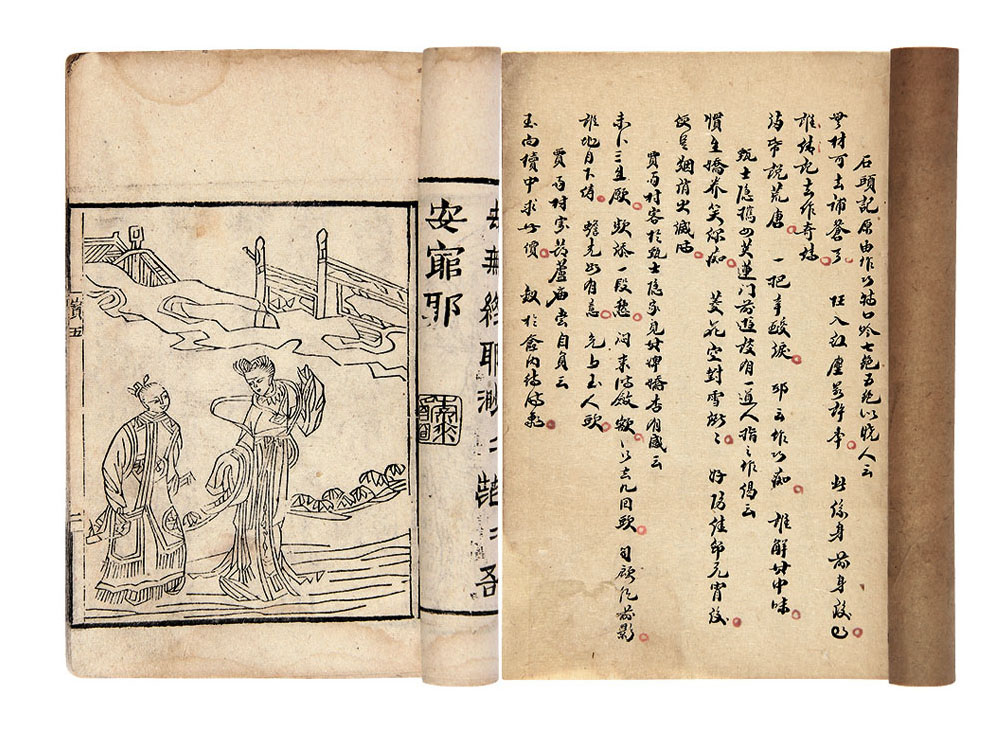 石頭記原由作以詩口吟七絕五絕以曉人云
無材可去補蒼天 枉入紅塵若許年 此係身前身後事
誰倩記去作奇傳
滿帋說荒唐 一把辛酸淚 都云作以痴 誰解其中味
甄士隱携女英蓮门前遊有一道人指之作偈云
慣生嬌養笑你痴 菱花空對雪澌〻 好防佳節元宵後
便是烟消火滅時
賈雨村客於甄士隱家見其婢嬌杏有感云
未卜三生願 頻添一段愁 悶來時斂額 行去几回頭 自顧风前影
誰堪月下儔 蟾光如有意 先上玉人頭
賈雨村寄居蘆庙嘗自負云
玉向櫝中求善價 釵於奩內待時飛
無終耶渺
安窮耶